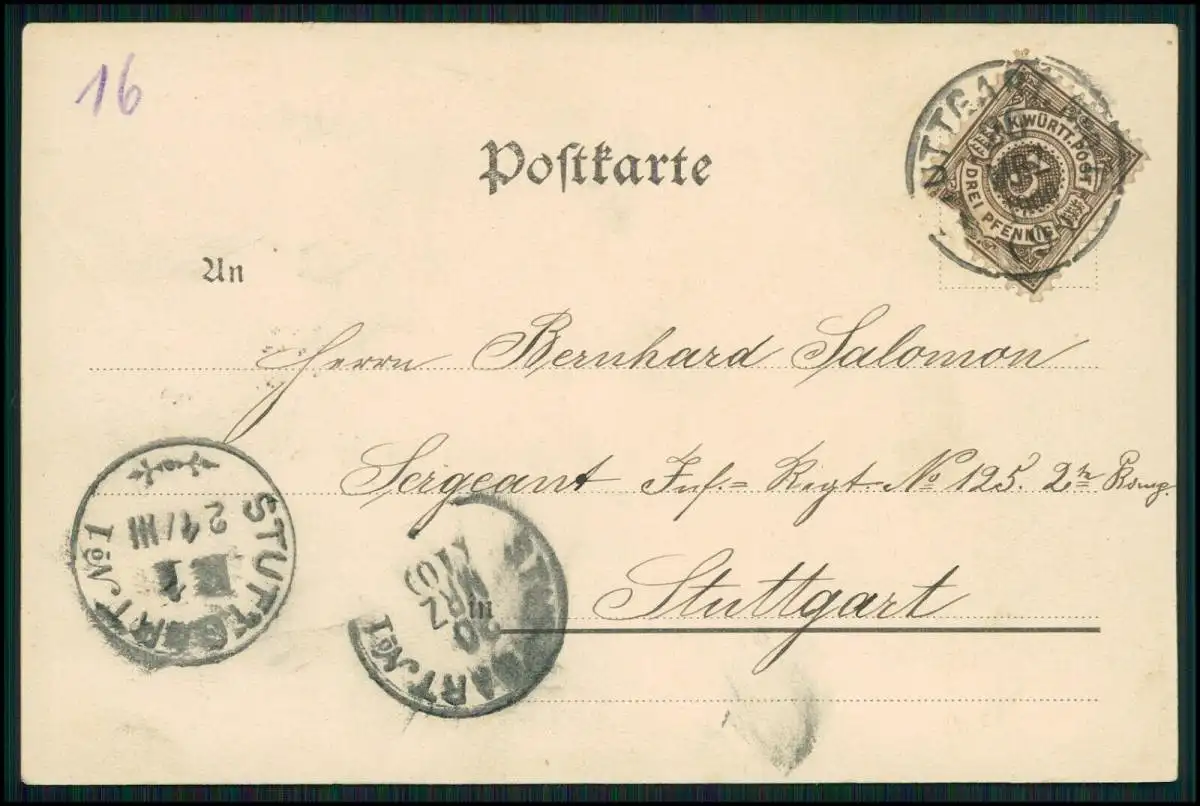 16
Postkarte
K. WÜRTT. POST
3
DREI PFENNIG
An
Herrn Bernhard Salomon
Sergeant Inf.= Regt No 125. 2te Komp.
in Stuttgart
STUTTGART No 1
21/III
STUTTGART No 1
MRZ
03